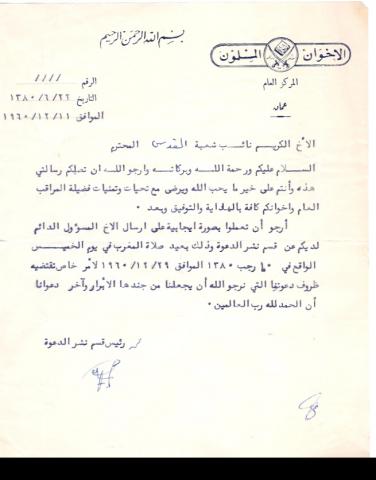 بسم الله الرحمن الرحيم
الاخوان المسلمون
المركز العام
عمان
الرقم ////
التاريخ ١٣٨٠/٦/٢٢
الموافق ١٩٦٠/١٢/١١
الأخ الكريم نائب شعبة القدس المحترم
السلام عليكم ورحمة الله وبركاته وارجو الله ان تصلكم رسالتي
هذه وأنتم على خير ما يحب الله ويرضى مع تحيات وتمنيات فضيلة المراقب
العام واخوانكم كافة بالهداية والتوفيق وبعد ٠
أرجو أن تعملوا بصورة ايجابية على ارسال الاخ المسؤول الدائم
لديكم عن قسم نشر الدعوة وذلك بعيد صلاة المغرب في يوم الخميس
الواقع في رجب ١٣٨٠ الموافق ١٩٦٠/١٢/٢٩ لأمر خاص تقتضيه
ظروف دعوتنا التي نرجو الله أن يجعلنا من جندها الأبرار وآخر دعوانا
أن الحمد لله رب العالمين ٠
رئيس قسم نشر الدعوة